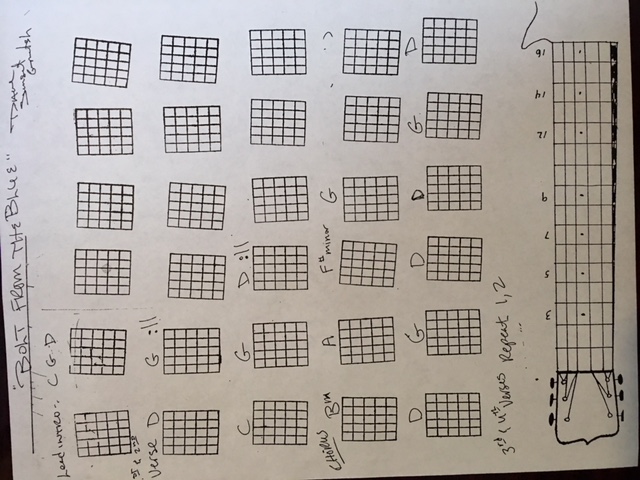 "BOLT FROM THE BLUE"
Lead INTRO-. C G D
1st & 2nd
Verse D G :||
C G D :||
CHORUS Bm A F# minor G
D G D D G D
3rd & 4th Verses Repeat 1, 2
3 5 7 9 12 14 16